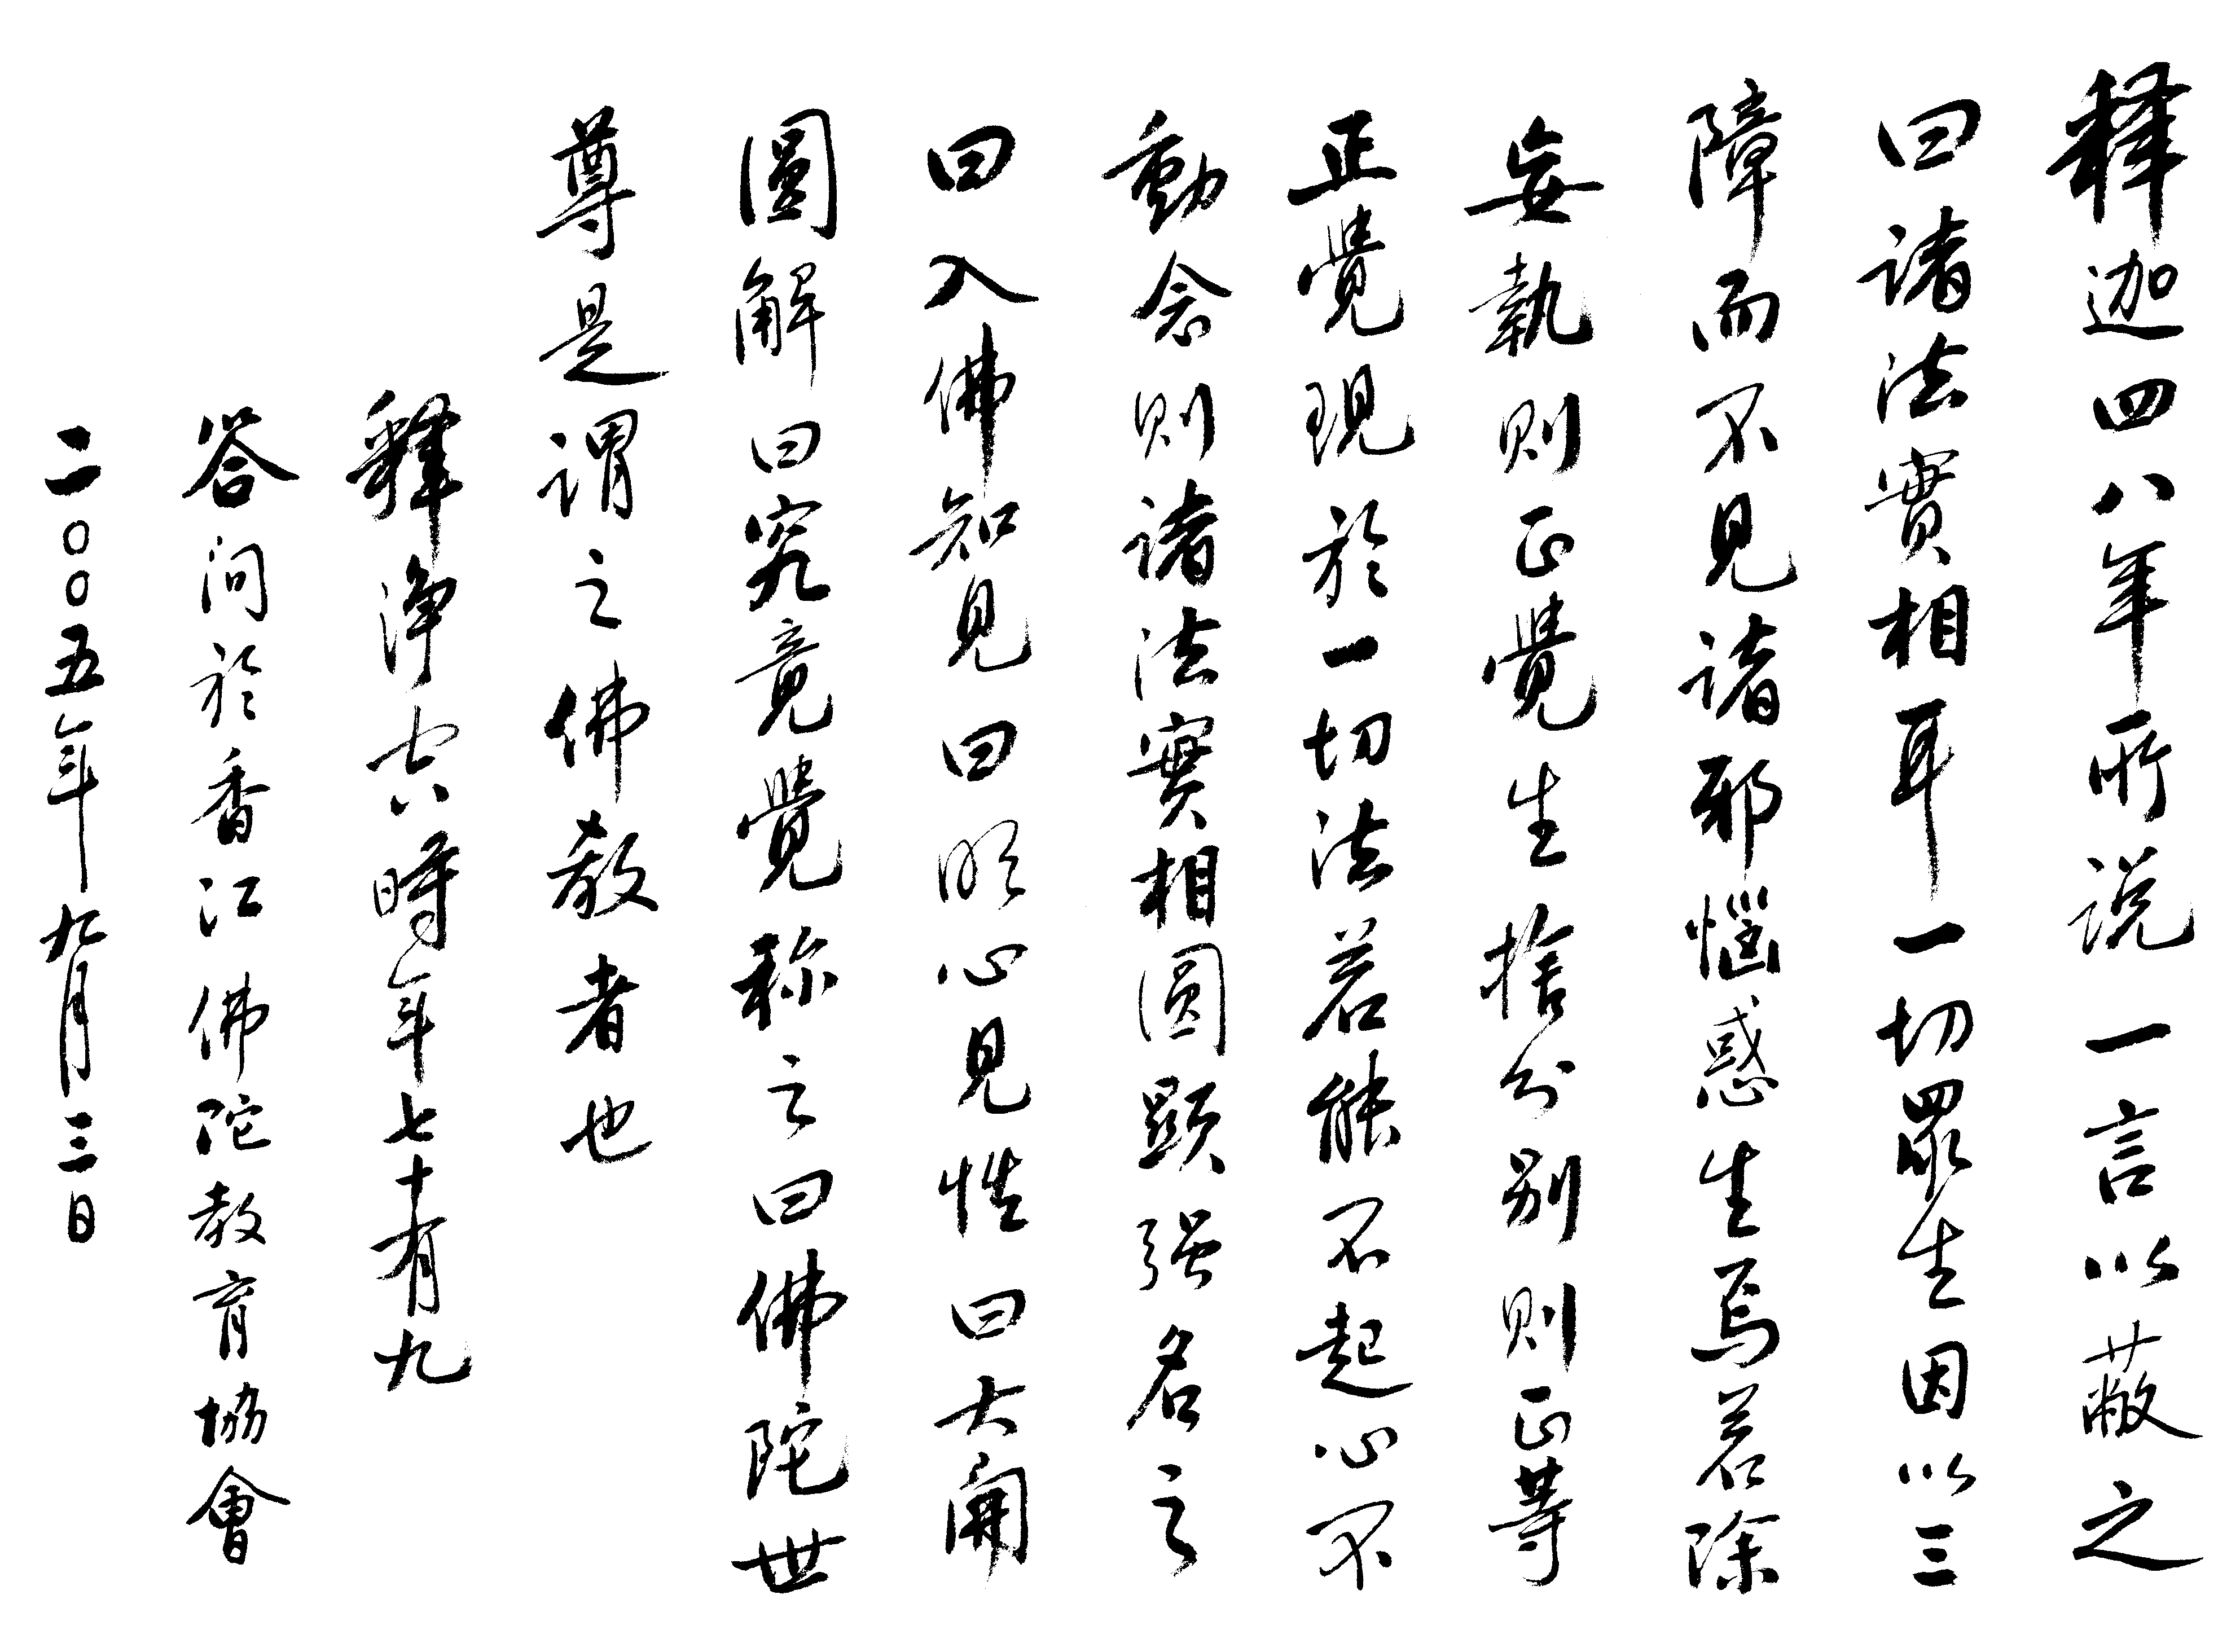 释迦四八年所说一言以蔽之
曰諸法實相耳一切眾生因以三
障而不見諸邪惱惑生焉若除
妄執則正覺生捨分别則正等
正覺現於一切法若能不起心不
動念則諸法實相圓顯强名之
曰入佛知見曰明心見性曰大開
圓解曰究竟覺称之曰佛陀世
尊是謂之佛教者也
释淨空時年七十有九
答问於香江佛陀教育協會
二〇〇五年九月三日